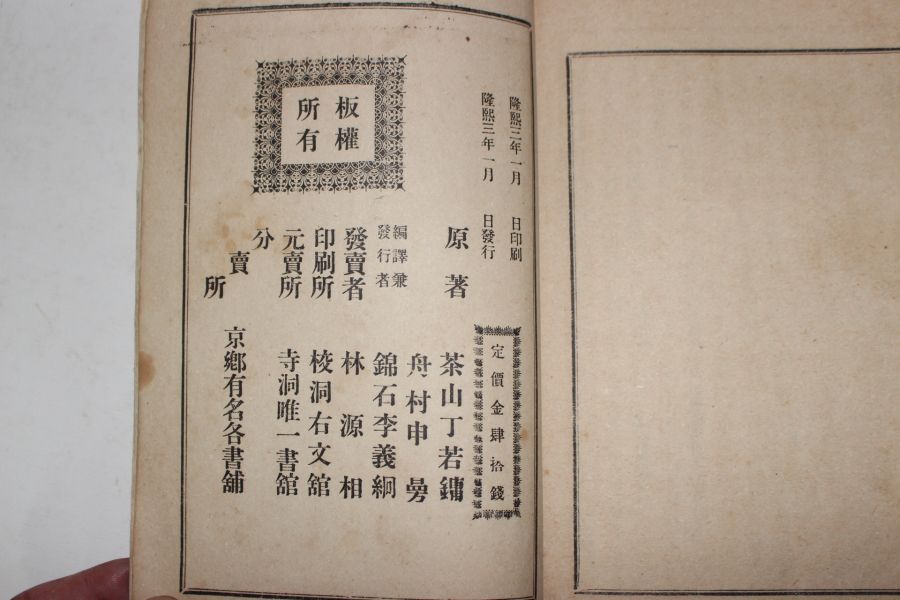 隆熙三年一月 日印刷
隆熙三年一月 日發行
定價金肆拾錢
板權
所有
原著 茶山丁若鏞
舟村申曼
編譯兼
發行者
錦石李義絅
發賣者 林源相
印刷所 棱洞右文舘
元賣所 寺洞唯一書舘
分賣所 京鄉有名各書舖